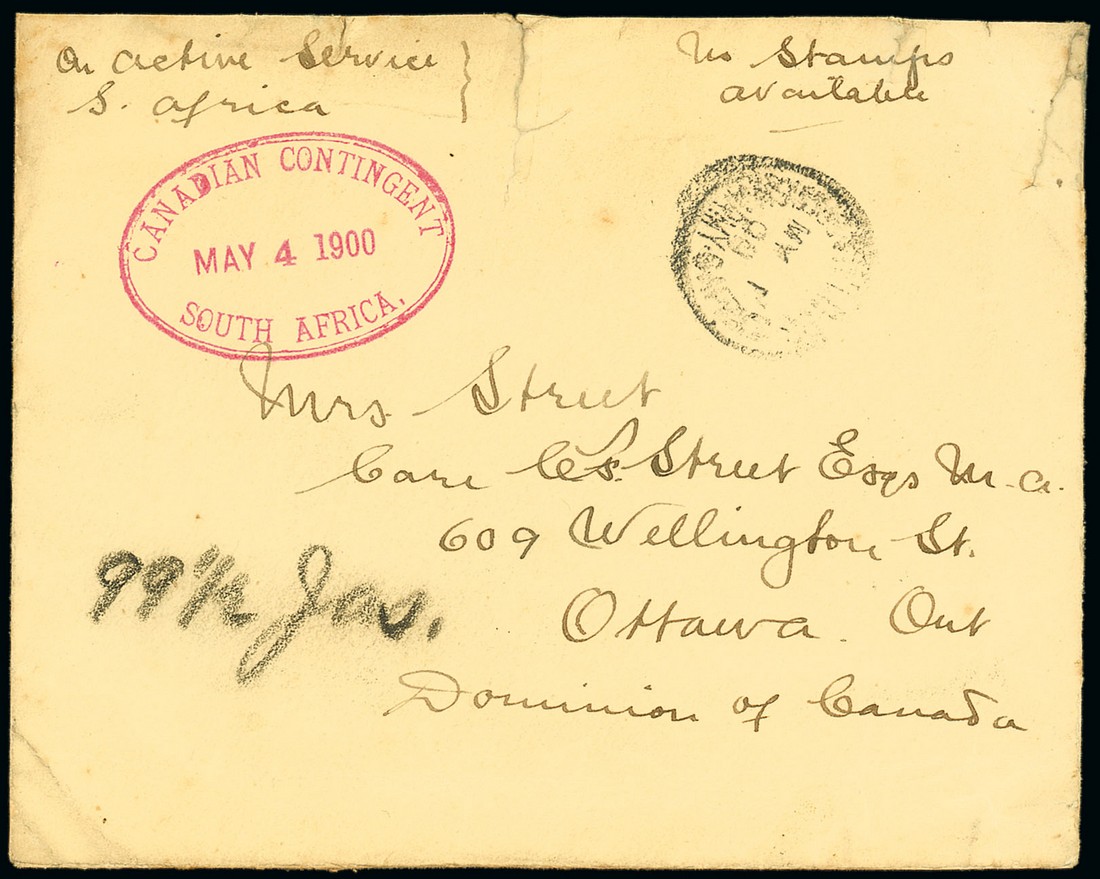 On active Service
S. Africa
No Stamps
available
CANADIAN CONTINGENT
MAY 4 1900
SOUTH AFRICA.
MY
00
Mrs Street
Care Street Esqs M.A.
609 Wellington St.
Ottawa Ont
Dominion of Canada
99 1/2 Jas.